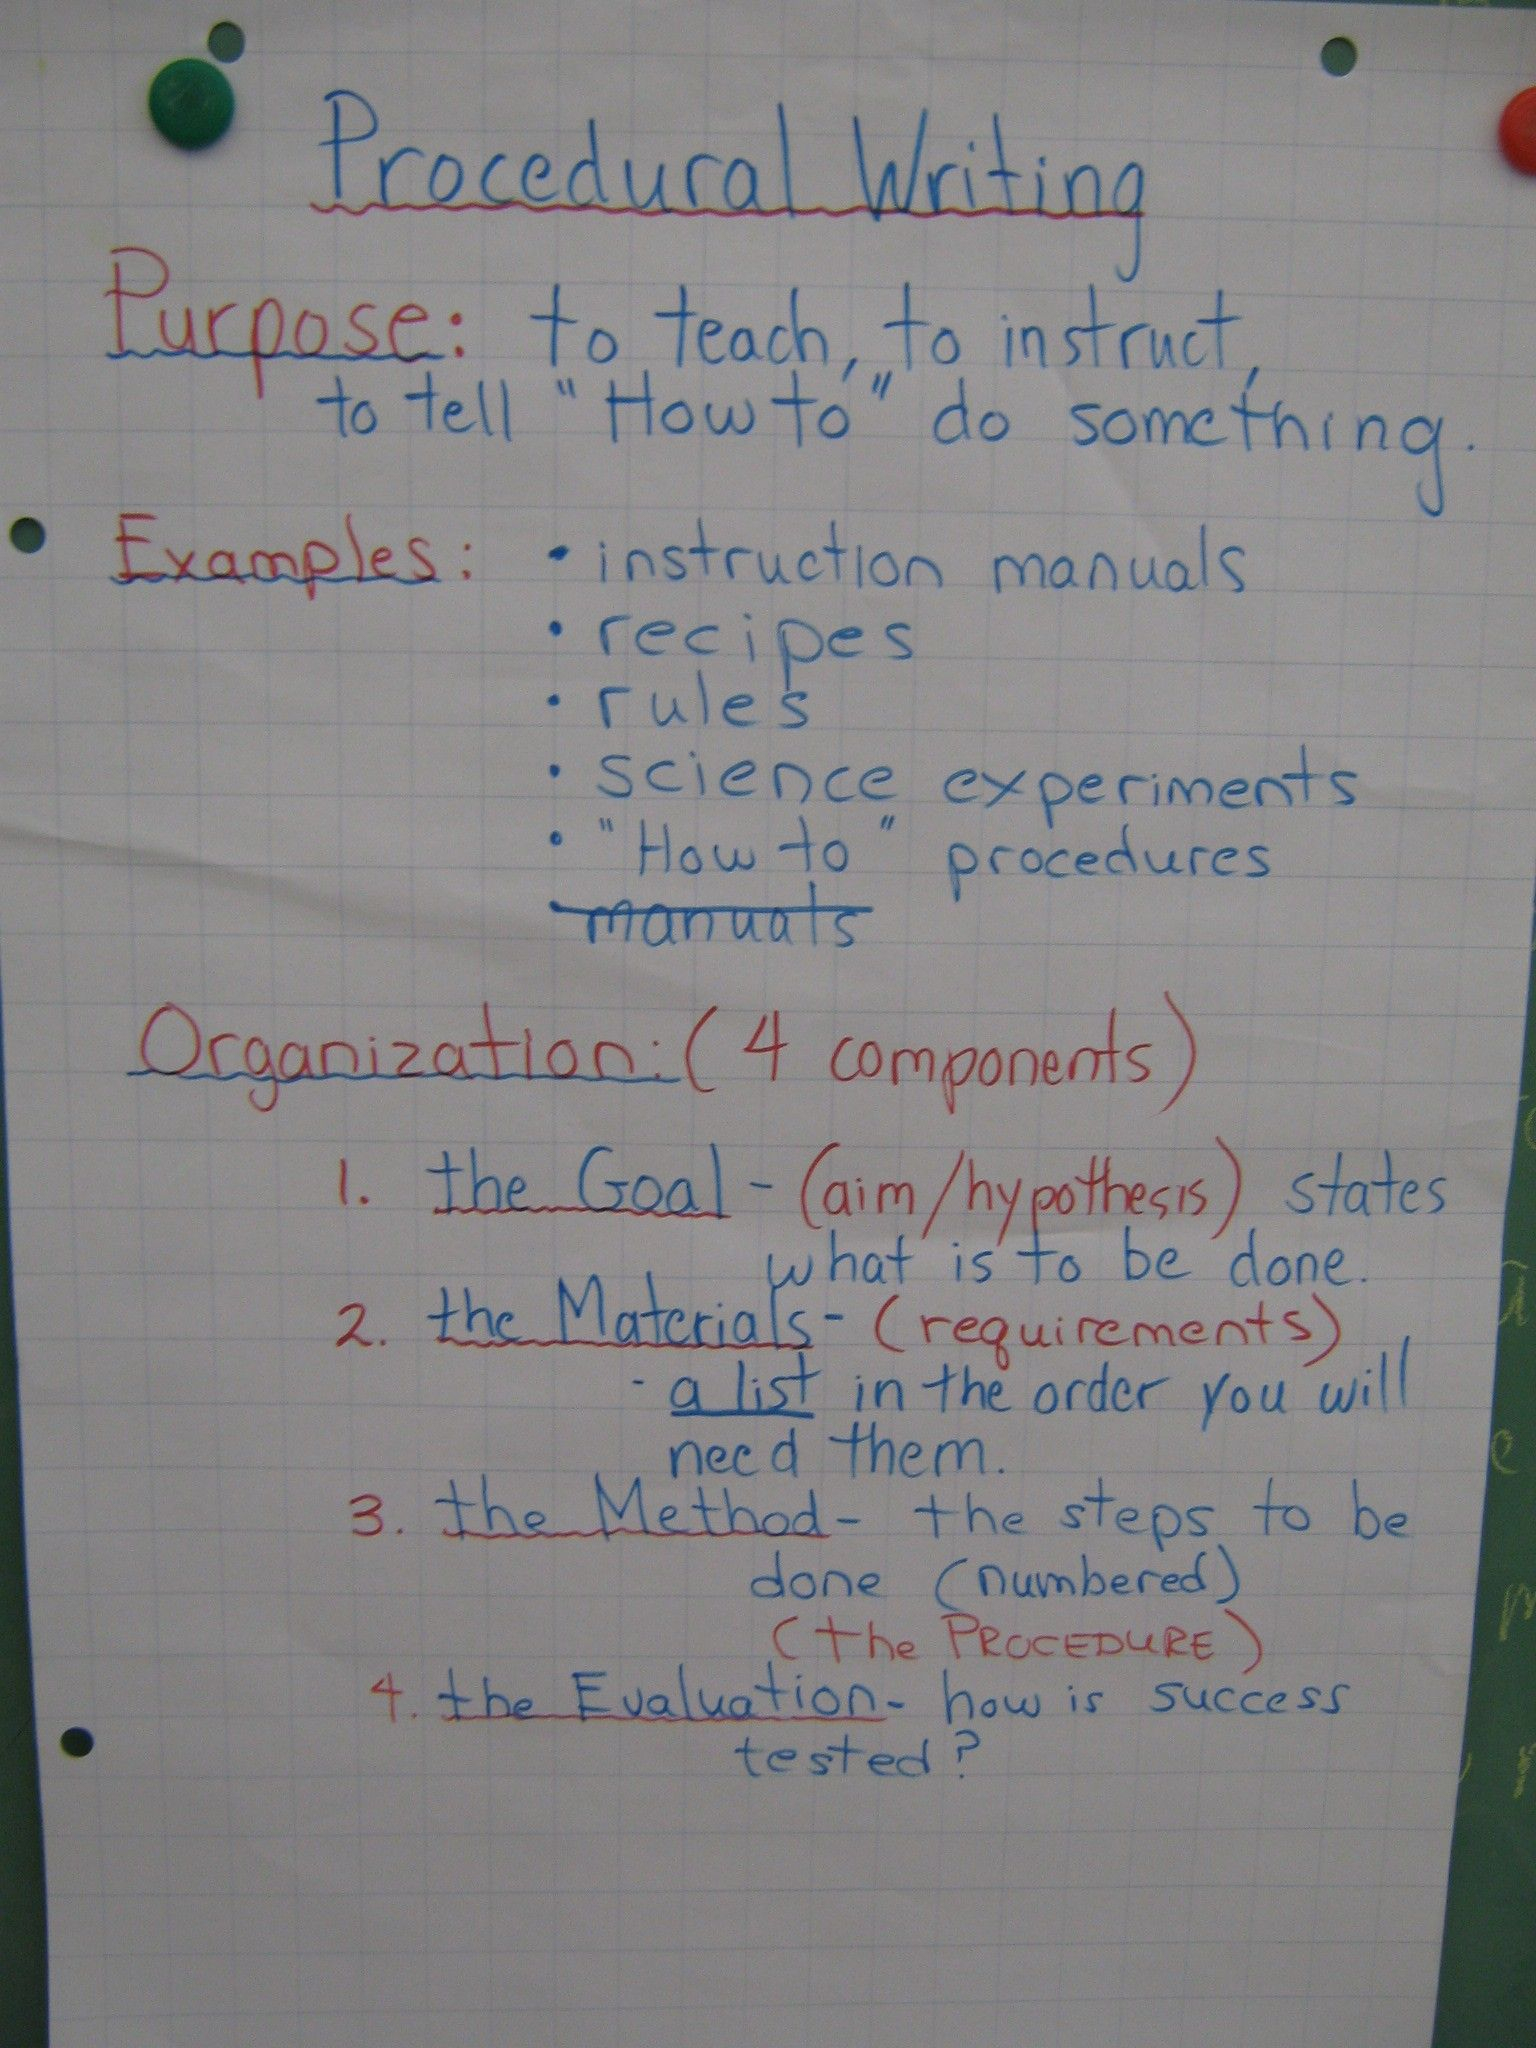 Procedural Writing
Purpose: to teach, to instruct,
to tell "How to" do something.
Examples: • instruction manuals
• recipes
• rules
• science experiments
• "How to" procedures
manuals
Organization: (4 components)
1. the Goal - (aim/hypothesis) states
what is to be done.
2. the Materials - (requirements)
- a list in the order you will
need them.
3. the Method - the steps to be
done (numbered)
(the PROCEDURE)
4. the Evaluation - how is success
tested?